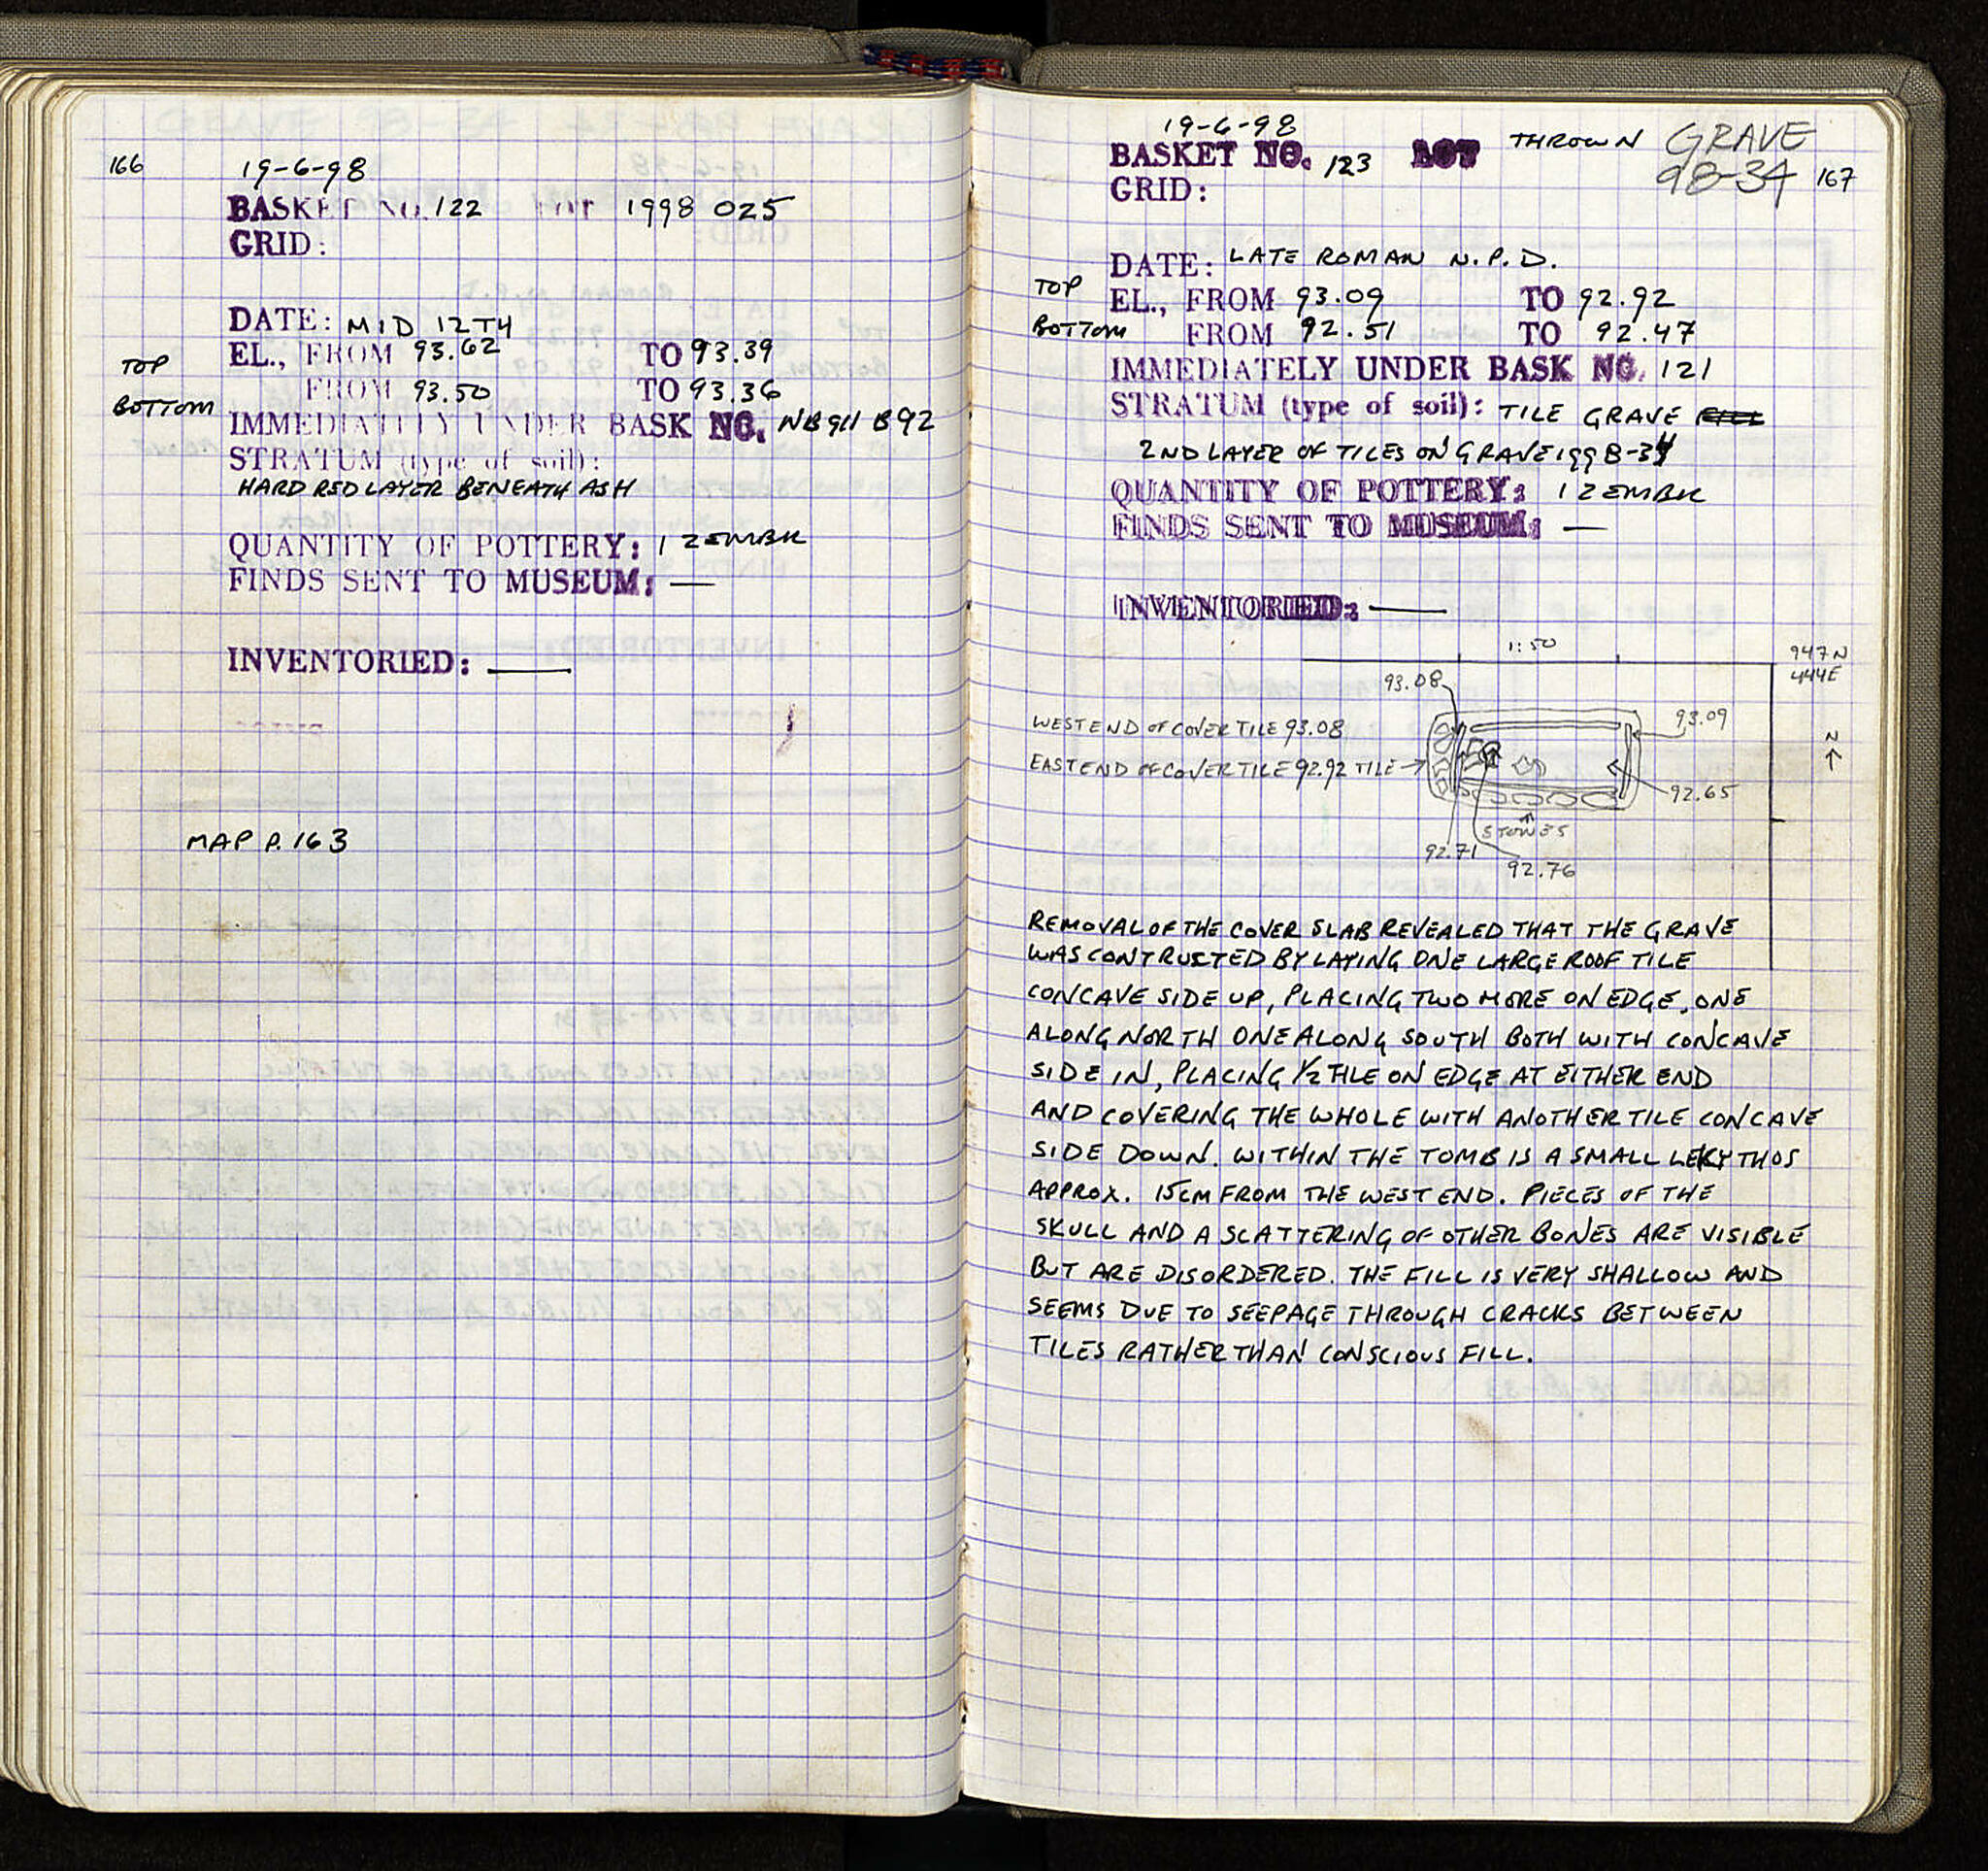 166
19-6-98
BASKET NO. 122 LOT 1998 025
GRID:
DATE: MID 12TH
TOP EL., FROM 93.62 TO 93.39
BOTTOM FROM 93.50 TO 93.36
IMMEDIATELY UNDER BASK NO. NB911 B92
STRATUM (type of soil):
HARD RED LAYER BENEATH ASH
QUANTITY OF POTTERY: 1 ZEMBIL
FINDS SENT TO MUSEUM: —
INVENTORIED: —
MAP P. 163
19-6-98
BASKET NO. 123 LOT THROWN GRAVE
98-34 167
GRID:
DATE: LATE ROMAN N.P.D.
TOP EL., FROM 93.09 TO 92.92
BOTTOM FROM 92.51 TO 92.47
IMMEDIATELY UNDER BASK NO. 121
STRATUM (type of soil): TILE GRAVE
2ND LAYER OF TILES ON GRAVE 1998-34
QUANTITY OF POTTERY: 1 ZEMBIL
FINDS SENT TO MUSEUM: —
INVENTORIED: —
1:50
947N
444E
93.08
WEST END OF COVER TILE 93.08
93.09
N
EAST END OF COVER TILE 92.92 TILE
92.65
STONES
92.71
92.76
REMOVAL OF THE COVER SLAB REVEALED THAT THE GRAVE
WAS CONTRUCTED BY LAYING ONE LARGE ROOF TILE
CONCAVE SIDE UP, PLACING TWO MORE ON EDGE, ONE
ALONG NORTH ONE ALONG SOUTH BOTH WITH CONCAVE
SIDE IN, PLACING 1/2 TILE ON EDGE AT EITHER END
AND COVERING THE WHOLE WITH ANOTHER TILE CONCAVE
SIDE DOWN. WITHIN THE TOMB IS A SMALL LEKYTHOS
APPROX. 15CM FROM THE WEST END. PIECES OF THE
SKULL AND A SCATTERING OF OTHER BONES ARE VISIBLE
BUT ARE DISORDERED. THE FILL IS VERY SHALLOW AND
SEEMS DUE TO SEEPAGE THROUGH CRACKS BETWEEN
TILES RATHER THAN CONSCIOUS FILL.